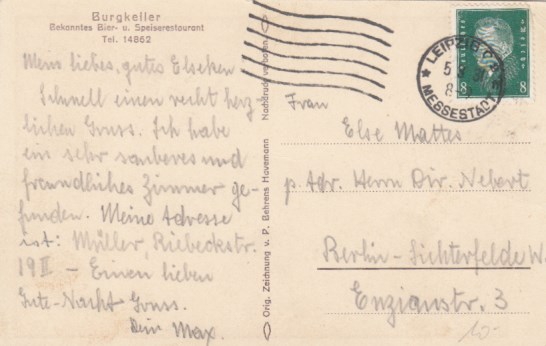 Burgkeller
Bekanntes Bier- u. Speiserestaurant
Tel. 14862
Mein liebes, gutes Elschen
Schnell einen recht herz-
lichen Gruss. Ich habe
ein sehr sauberes und
freundliches Zimmer ge-
funden. Meine Adresse
ist: Müller, Riebeckstr.
19 II – Einen lieben
Gute-Nacht Gruss.
Dein Max.
Orig. Zeichnung v. P. Behrens Havemann
Nachdruck verboten
LEIPZIG C
MESSESTADT
8 8
Frau
Else Mattes
p. Adr. Herrn Dir. Nebert
Berlin-Lichterfelde W.
Enzianstr. 3
10-